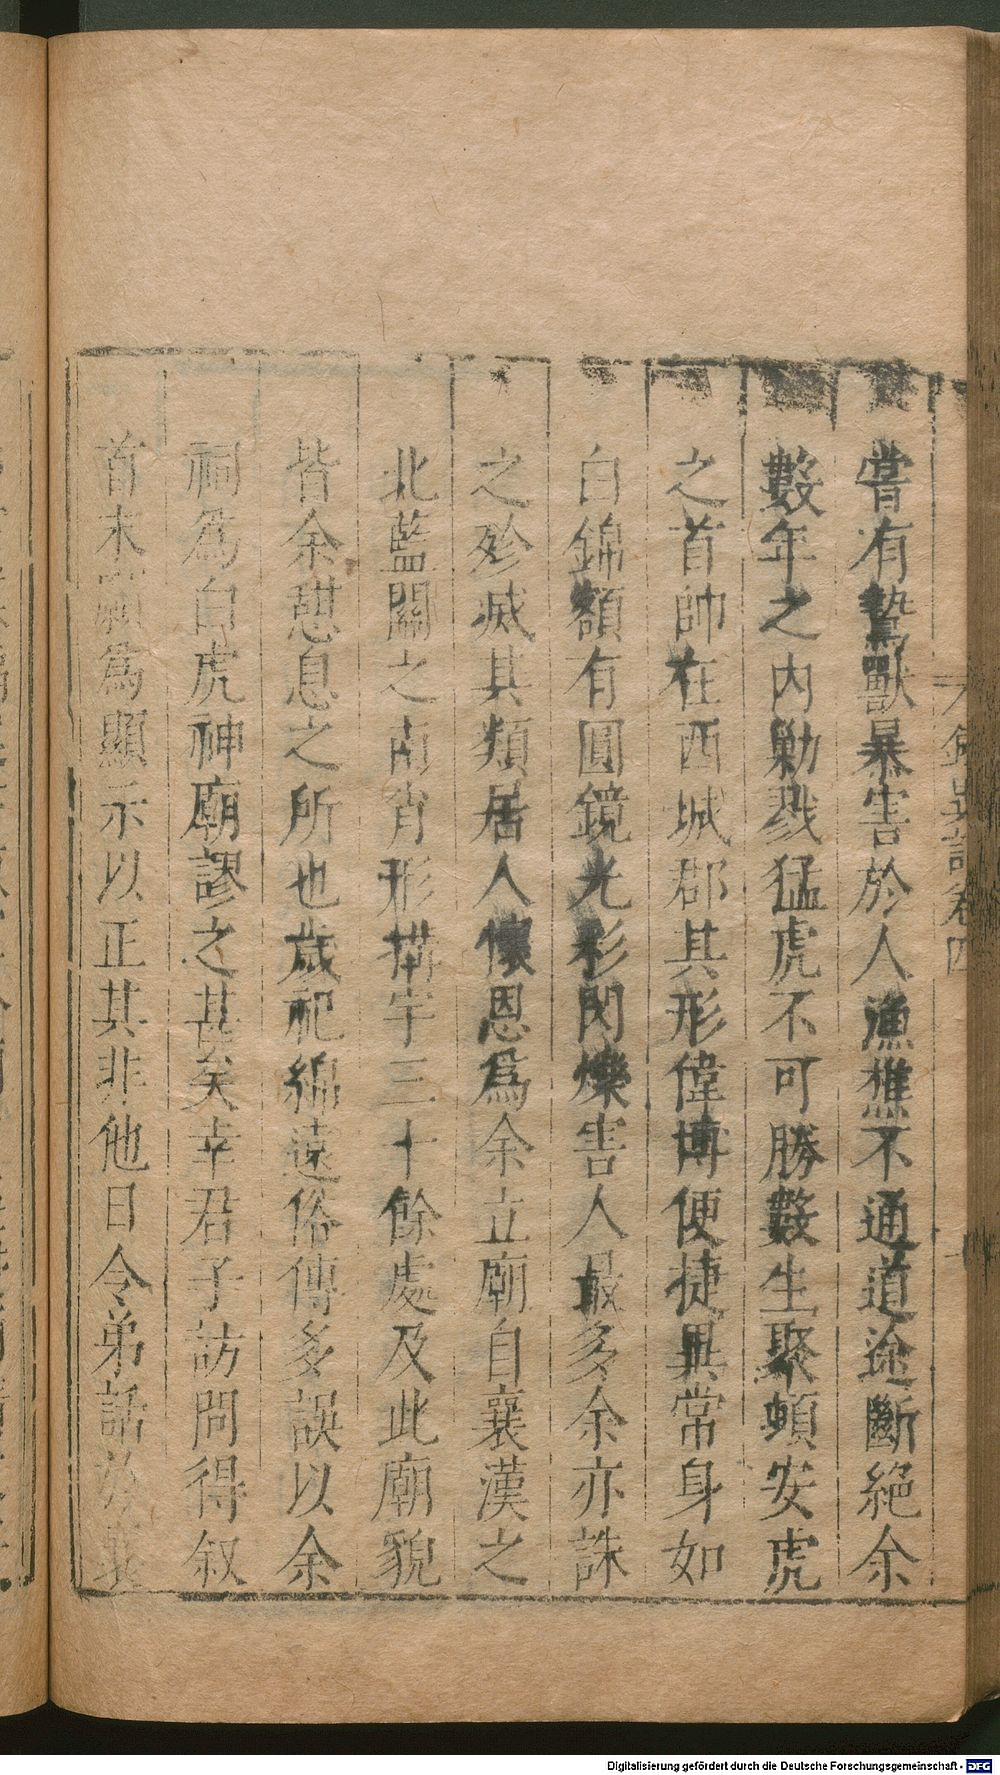 嘗有鷙獸暴害於人漁樵不通道途斷絕余
數年之内勦戮猛虎不可勝數生聚頓安虎
之首帥在西城郡其形偉博便捷異常身如
白錦額有圓鏡光彩閃爍害人最多余亦誅
之殄滅其類居人懷恩爲余立廟自襄漢之
北藍關之南肖形構宇三十餘處及此廟貌
皆余憩息之所也歲祀綿遠俗傳多誤以余
祠爲白虎神廟謬之甚矣幸君子訪問得叙
首末願爲顯示以正其非他日令弟話於襄
異記卷四
Digitalisierung gefördert durch die Deutsche Forschungsgemeinschaft - DFG